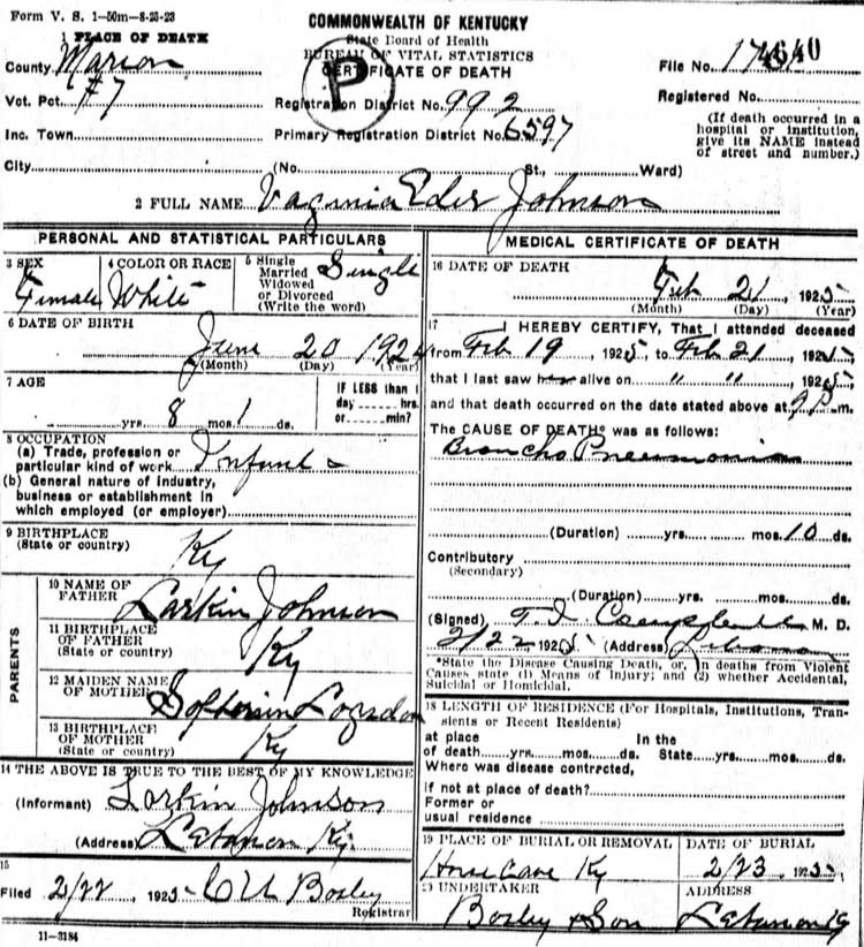 Form V. S. 1—50m—8-25-23
COMMONWEALTH OF KENTUCKY
State Board of Health
BUREAU OF VITAL STATISTICS
CERTIFICATE OF DEATH
P
1 PLACE OF DEATH
County Marion
Vot. Pct. #7
Inc. Town
City (No. St., Ward)
Registration District No. 992
Primary Registration District No. 6597
File No.
Registered No.
(If death occurred in a
hospital or institution,
give its NAME instead
of street and number.)
2 FULL NAME Johnson
PERSONAL AND STATISTICAL PARTICULARS
3 SEX
Female
4 COLOR OR RACE
White
5 Single
Married
Widowed
or Divorced
(Write the word)
Single
6 DATE OF BIRTH
June 20 1924
(Month) (Day) (Year)
7 AGE
yrs. 8 mos. 1 ds.
IF LESS than 1
day hrs.
or min?
8 OCCUPATION
(a) Trade, profession or
particular kind of work Infant
(b) General nature of industry,
business or establishment in
which employed (or employer)
9 BIRTHPLACE
(State or country)
Ky
PARENTS
10 NAME OF
FATHER
Larkin Johnson
11 BIRTHPLACE
OF FATHER
(State or country)
Ky
12 MAIDEN NAME
OF MOTHER
Logsdon
13 BIRTHPLACE
OF MOTHER
(State or country)
Ky
14 THE ABOVE IS TRUE TO THE BEST OF MY KNOWLEDGE
(Informant) Larkin Johnson
(Address) Lebanon Ky.
15
Filed 2/22 1925 Bosley
Registrar
11—3184
MEDICAL CERTIFICATE OF DEATH
16 DATE OF DEATH
Feb 21, 1925
(Month) (Day) (Year)
17 I HEREBY CERTIFY, That I attended deceased
from Feb 19, 1925, to Feb 21, 1925,
that I last saw alive on " ", 1925,
and that death occurred on the date stated above at 9 P. m.
The CAUSE OF DEATH* was as follows:
Broncho Pneumonia
(Duration) yrs. mos. 10 ds.
Contributory
(Secondary)
(Duration) yrs. mos. ds.
(Signed) M. D.
2/22 1925 (Address) Lebanon
*State the Disease Causing Death, or, in deaths from Violent
Causes state (1) Means of Injury; and (2) whether Accidental,
Suicidal or Homicidal.
18 LENGTH OF RESIDENCE (For Hospitals, Institutions, Tran-
sients or Recent Residents)
at place In the
of death yrs. mos. ds. State yrs. mos. ds.
Where was disease contrected,
if not at place of death?
Former or
usual residence
19 PLACE OF BURIAL OR REMOVAL
Horse Cave Ky
DATE OF BURIAL
2/23 1925
20 UNDERTAKER
Bosley & Son
ADDRESS
Lebanon Ky